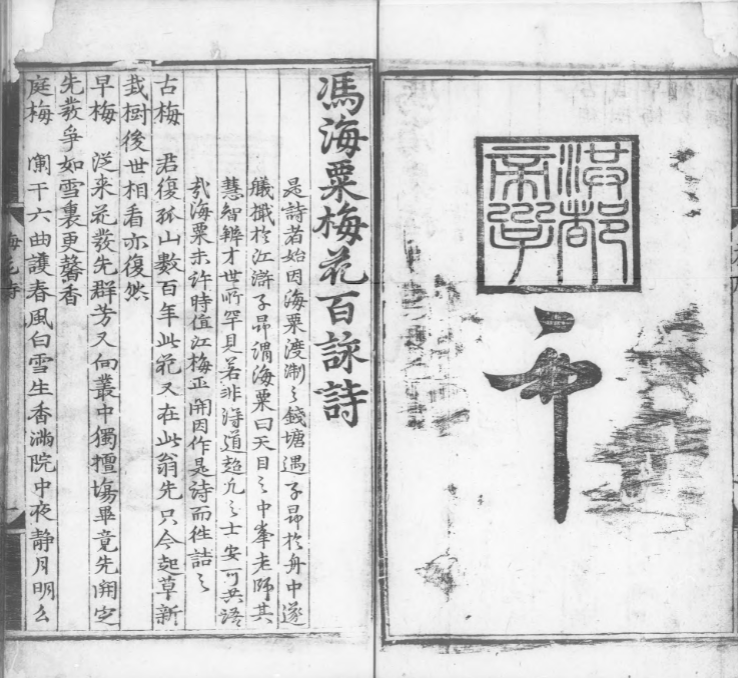 洪都
馮海粟梅花百詠詩
是詩者始因海粟渡淛之錢塘遇子昂於舟中遂
艤檝於江滸子昂謂海粟曰天目之中峯老師其
慧智辨才世所罕見若非淂道超凢之士安可共語
哉海粟未許時值江梅正開因作是詩而徃詰之
古梅 君復孤山數百年此花又在此翁先只今起草新
栽樹後世相看亦復然
早梅 泛來花發先群芳又向叢中獨擅塲畢竟先開空
先發爭如雪裏更馨香
庭梅 闌干六曲護春風白雪生香滿院中夜靜月明么
梅花詩